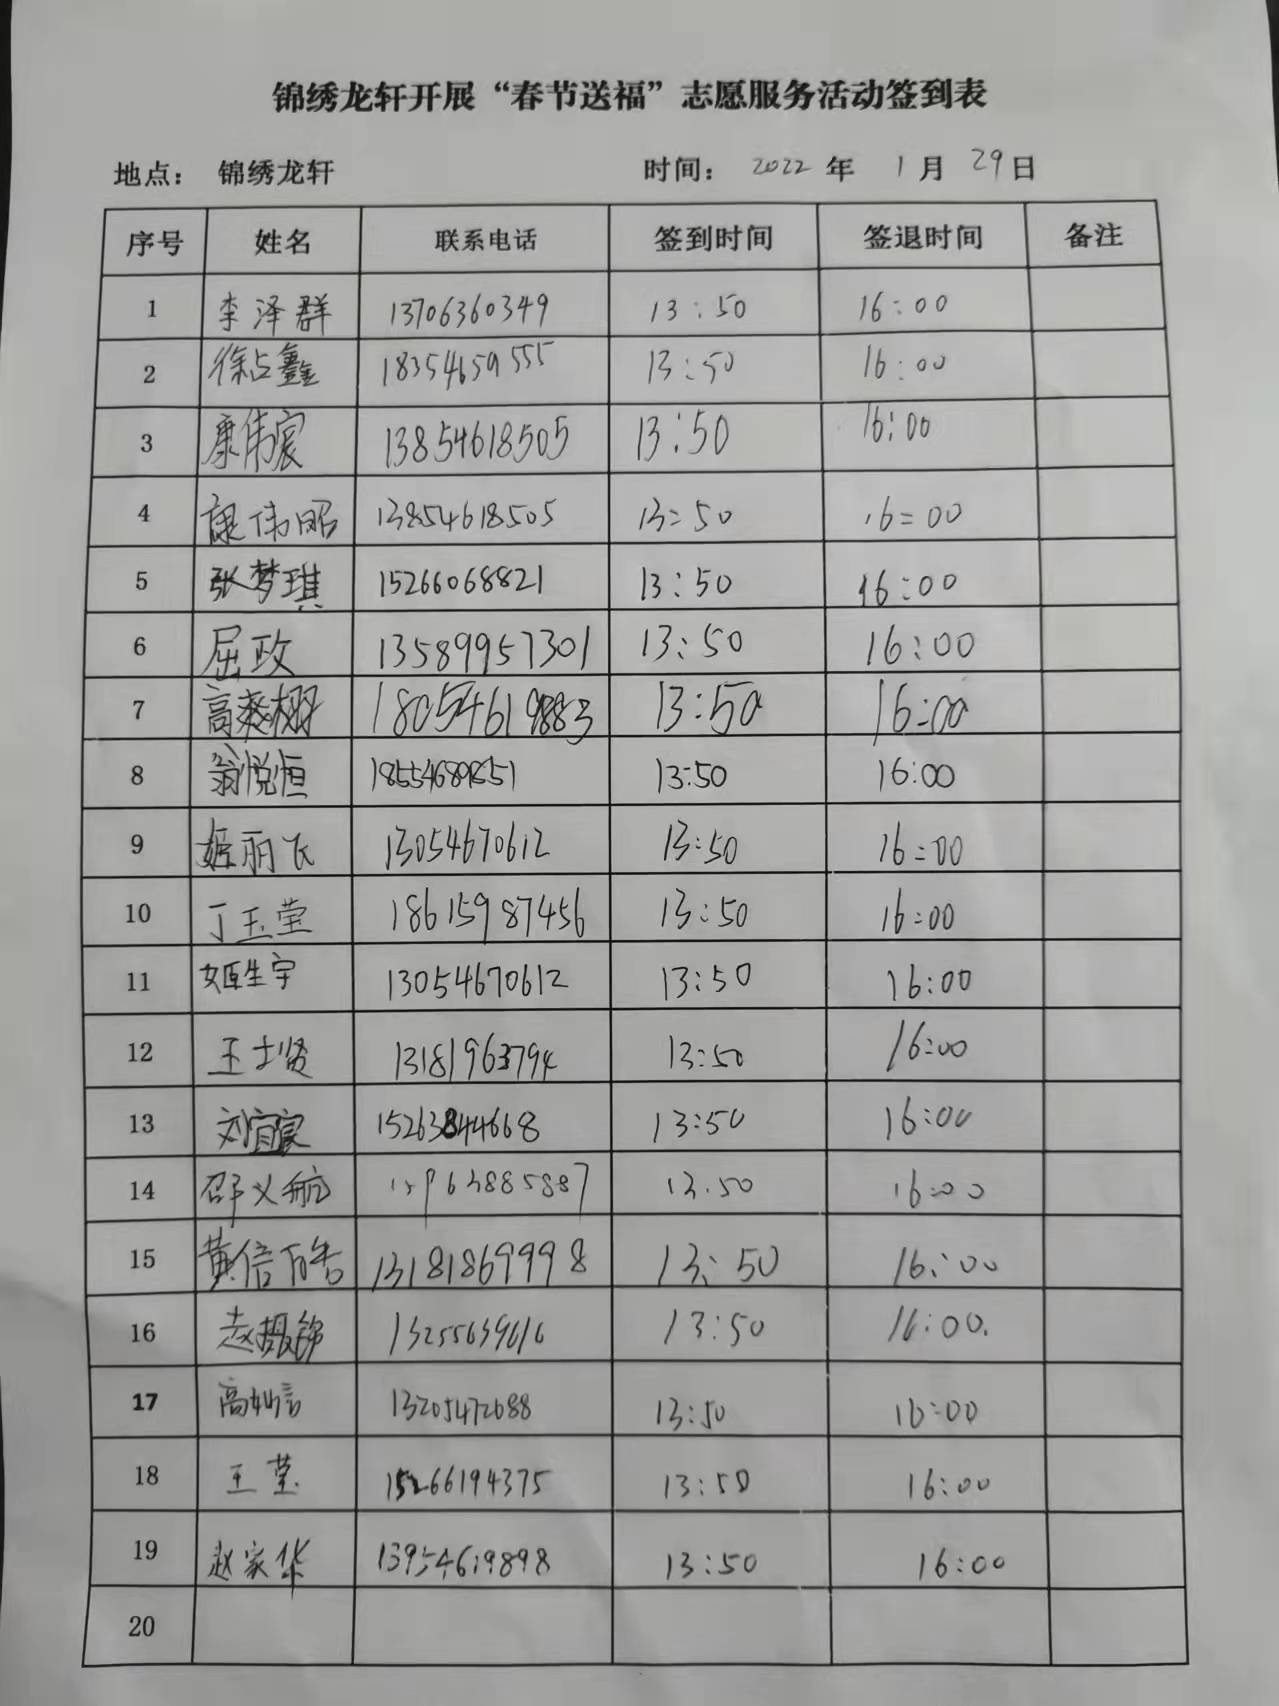 锦绣龙轩开展“春节送福”志愿服务活动签到表
地点： 锦绣龙轩 时间： 2022 年 1 月 29 日
序号 姓名 联系电话 签到时间 签退时间 备注
1 李泽群 13706360349 13:50 16:00
2 徐占鑫 18354659555 13:50 16:00
3 康伟宸 13854618505 13:50 16:00
4 康伟昭 13854618505 13:50 16:00
5 张梦琪 15266068821 13:50 16:00
6 屈政 13589957301 13:50 16:00
7 高爽栩 18054619883 13:50 16:00
8 翁悦恒 13:50 16:00
9 姬丽飞 13054670612 13:50 16:00
10 丁玉莹 18615987456 13:50 16:00
11 姬生宇 13054670612 13:50 16:00
12 王士贤 13181963794 13:50 16:00
13 刘宜宸 15263844668 13:50 16:00
14 邵义航 13.50 16:00
15 黄信百皓 13181869998 13:50 16:00
16 赵振锦 13255639616 13:50 16:00.
17 高灿言 13205472688 13:50 16:00
18 王莹 15266194375 13:50 16:00
19 赵家华 13954619898 13:50 16:00
20